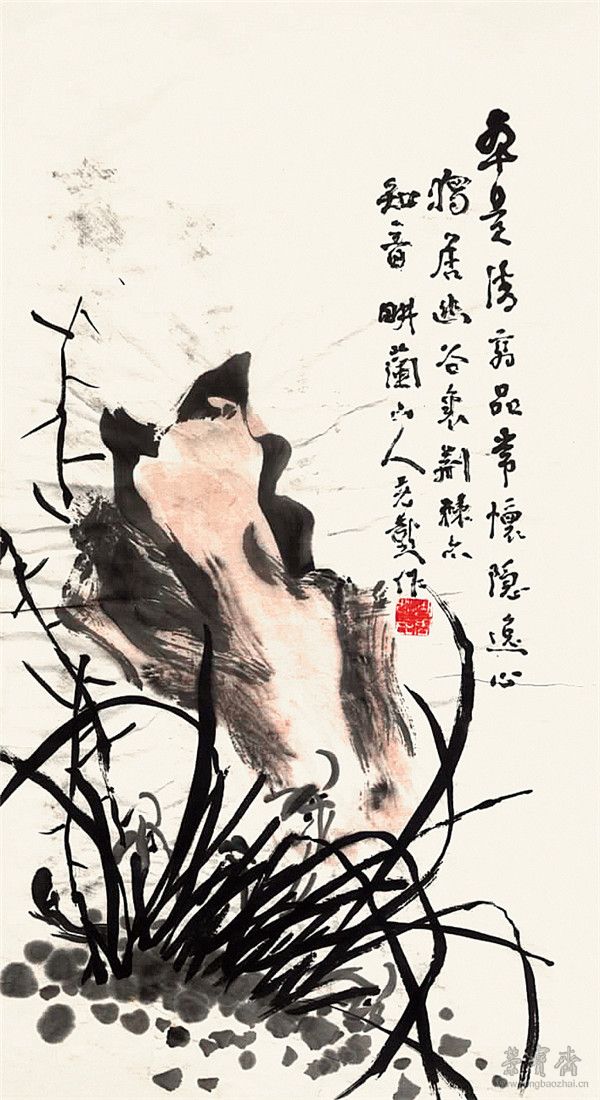 本是清高品常怀隐逸心
独居幽谷里荆棘亦
知音 畊蘭山人 作
榮寶齋
www.rongbaozhai.cn